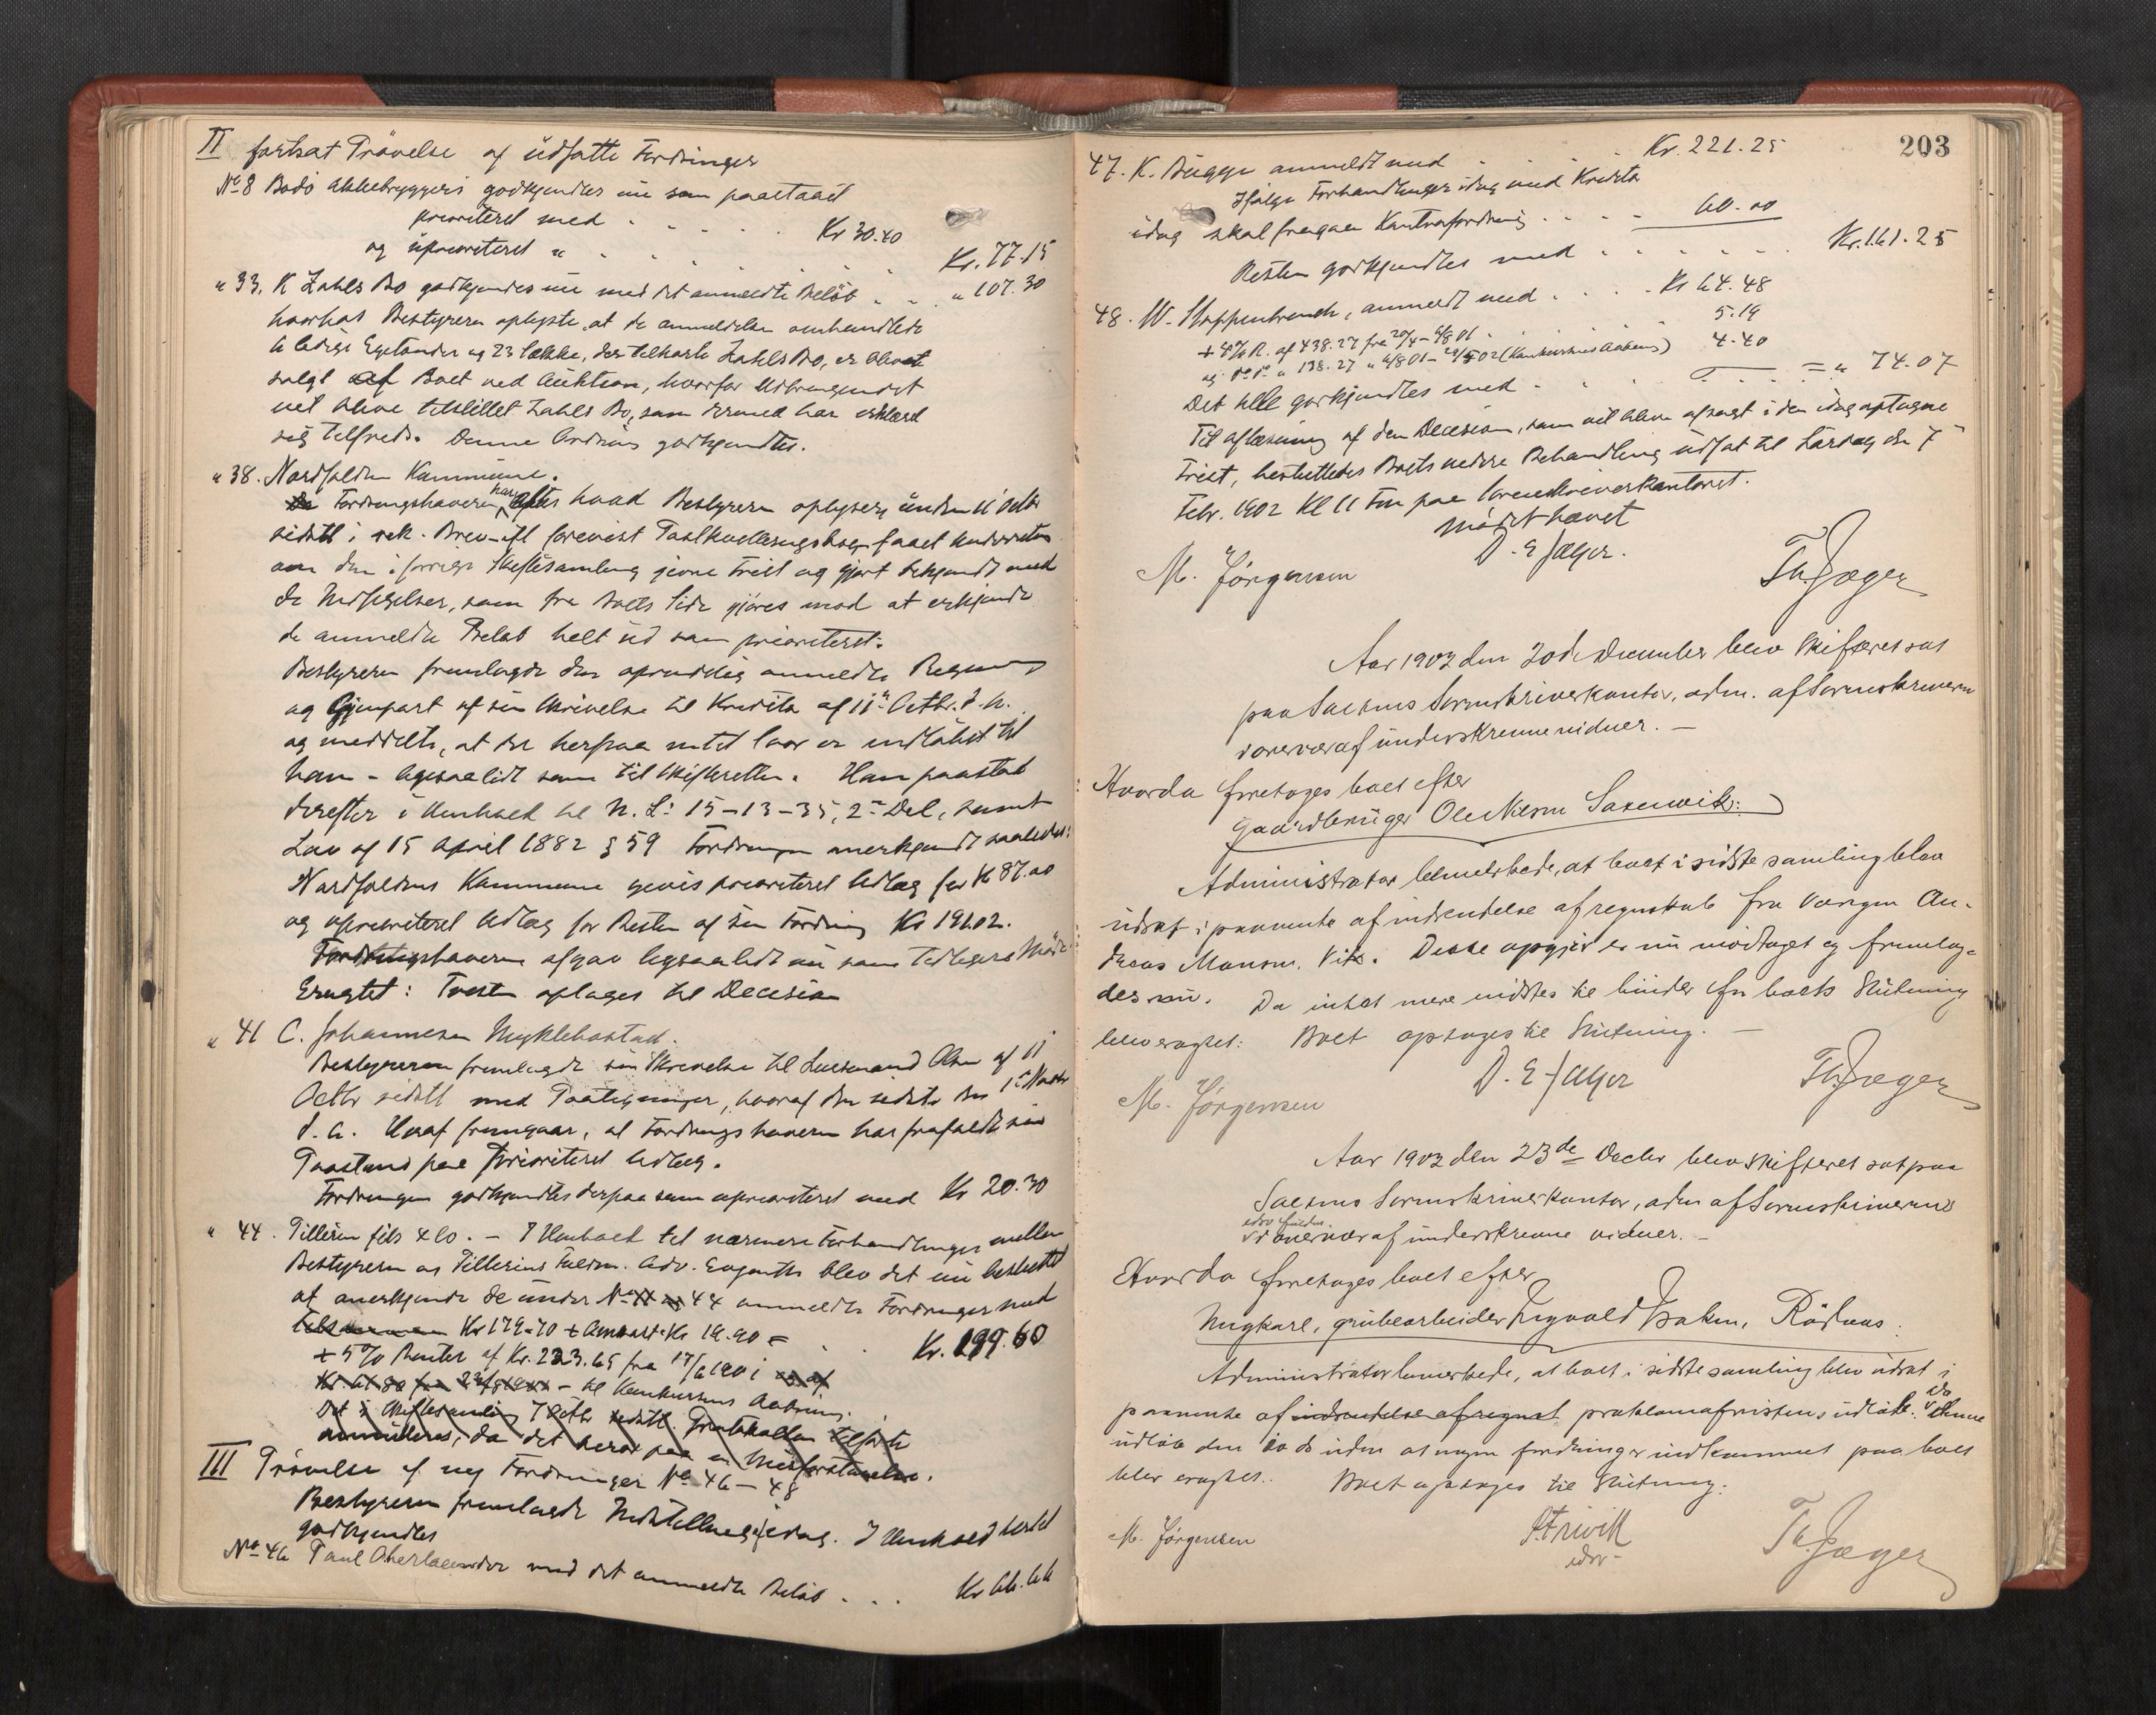 II fortsat Prøvelse af udsatte Fordringer
No 8 Bodø Aktiebryggeri godkjendtes nu som paastaaet
prioriteret med . . . . . Kr 30.40
og uprioriteret " . . . . . . . Kr. 77.15
" 33. K Zahls Bo godkjendes nu med det anmeldte Beløb . . . " 107.30
hvorhos Bestyreren oplyste, at de anmeldelsen omhandlede
6 ledige og 23 , der tilhørte Zahls Bo, er blevet
solgt af Boet ved Auktion, hvorfor Udbringendet
vil blive tilstillet Zahls Bo, som dermed har erklæret
sig tilfreds. Denne Ordning godkjendtes.
" 38. Nordfolden Kommune.
Fordringshaveren har efter hvad Bestyreren oplyser, under 11 Octbr
sidstl i rek. Brev ifl forevist faaet Underretn
om den i forrige Skiftesamling givne Frist og gjort bekjendt med
de Indsigelser, som fra Boets Side gjøres mod at erkjende
de anmeldte Beløb helt ud som prioriteret.
Bestyreren fremlagde den oprindelig anmeldte Regning
og Gjenpart af sin Skrivelse til Kreditor af 11te Octbr. d. A.
og meddelte, at der herpaa intet Svar er indløbet til
ham – ligesaalidt som til Skifteretten. Han paastod
derefter i Henhold til N. L: 15–13–35, 2den Del, samt
Lov af 15 April 1882 § 59 Fordringen anerkjendt saaledes:
Nordfoldens Kommune gives prioriteret Udlæg for Kr 87.00
og uprioriteret Udlæg for Resten af sin Fordring Kr 191.02.
Fordringshaveren afgav ligesaalidt nu som tidligere Møde
Eragtet: Tvisten optages til Decision
" 41 C. Johannesen Myklebostad.
Bestyreren fremlagde sin Skrivelse til Lensmand Olsen af 11
Octbr sidstl med Paategninger, hvoraf den sidste den 1ste Novbr
d. A. Heraf fremgaar, at Fordringshaveren har frafaldt sin
Paastand paa prioriteret Udlæg.
Fordringen godkjendtes derpaa som uprioriteret med Kr 20.30
" 44. Tillerin fils & Co. – I Henhold til nærmere Forhandlinger mellem
Bestyreren og Tillerins Fuldm. Adv. blev det nu besluttet
at anerkjende de under No 44 anmeldte Fordringer med
Kr 179.70 + Omkost. Kr 19.90 = . . Kr. 199.60
+ 5% Renter af Kr. 223.65 fra 17/6 1901
– til Konkursens Aabning.
Det i Skiftesamling 7 Octbr sidstl. Protokollen tilførte
annulleres, da det beror paa en Misforstaaelse.
III Prøvelse af nye Fordringer No 46 – 48
Bestyreren fremlagde Indstilling idag. I Henhold hertil
godkjendtes
No 46 Paul Oberlaender med det anmeldte Beløb . . . Kr 66.66
203
47. K. Bugge anmeldt med . . . . Kr. 221.25
Ifølge Forhandlinger idag med Kreditor
idag skal fragaa Kontrafordring . . . . 60.00
Resten godkjendtes med . . . . . . Kr. 161.25
48. W. Stoppenbrench, anmeldt med . . . . Kr 64.48
+ 4% R. af 438.27 fra 20/4 – 6/8 01 . 5.19
og do do " 138.27 " 6/8 01 – (Konkursens Aabning) 4.40
Det hele godkjendtes med . . . . = " 74.07
Til aflæsning af den Decision, som vil blive afsagt i den idag optagne
Tvist, besluttedes Boets videre Behandling udsat til Lørdag den 7de
Febr. 1902 Kl 11 Fm paa Sorenskriverkontoret.
Mødet hævet
M. Jørgensen D. E Jæger. Th. Jæger
Aar 1902 den 20de December blev Skifteret sat
paa Saltens Sorenskriverkontor, adm. af Sorenskriveren
i overvær af underskrevne vidner. –
Hvorda foretoges boet efter
Gaardbruger Ole Nilsen Saxenvik:
Administrator bemerkede, at boet i sidste samling blev
udsat i paavente af indsendelse af regnskab fra Værgen An-
dreas Monsen, Vik. Disse opgjør er nu modtaget og fremlag-
des nu. Da intet mere vidstes til hinder for boets Slutning
blev eragtet: Boet optages til Slutning. –
M. Jørgensen D. E Jæger Th. Jæger
Aar 1902 den 23de Decbr blev Skifteret sat paa
Saltens Sorenskriverkontor, adm af Sorenskriverens
edsv fuldm.
i overvær af underskrevne vidner. –
Hvorda foretoges boet efter
Ungkarl, grubearbeider Sigvald Isaksen, Rødaas.
Administrator bemerkede, at boet i sidste samling blev udsat i
paavente af indsendelse af regnsk proklamafristens udløb. Da denne
udløb den 10 ds uden at nogen fordringer indkommet paa boet
blev eragtet: Boet optages til Slutning:
M. Jørgensen Th. Jæger
edsv –